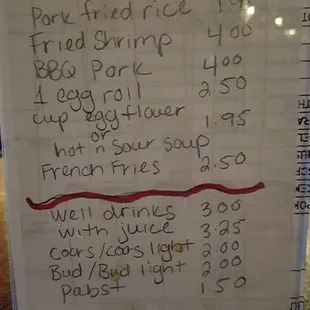 Pork fried rice
Fried Shrimp 4.00
BBQ Pork 4.00
1 egg roll 2.50
cup egg flower
or 1.95
hot n sour soup
French Fries 2.50
Well drinks 3.00
with juice 3.25
Coors/coors light 2.00
Bud/Bud light 2.00
Pabst 1.50